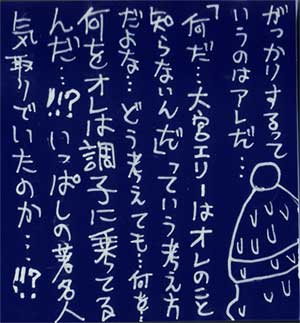 がっかりするって
いうのはアレだ…
「何だ…大宮エリーはオレのこと
知らないんだ」っていう考え方
だよな…どう考えても…何を…
何をオレは調子に乗ってる
んだ…!!!?いっぱしの著名人
気取りでいたのか…!!!?